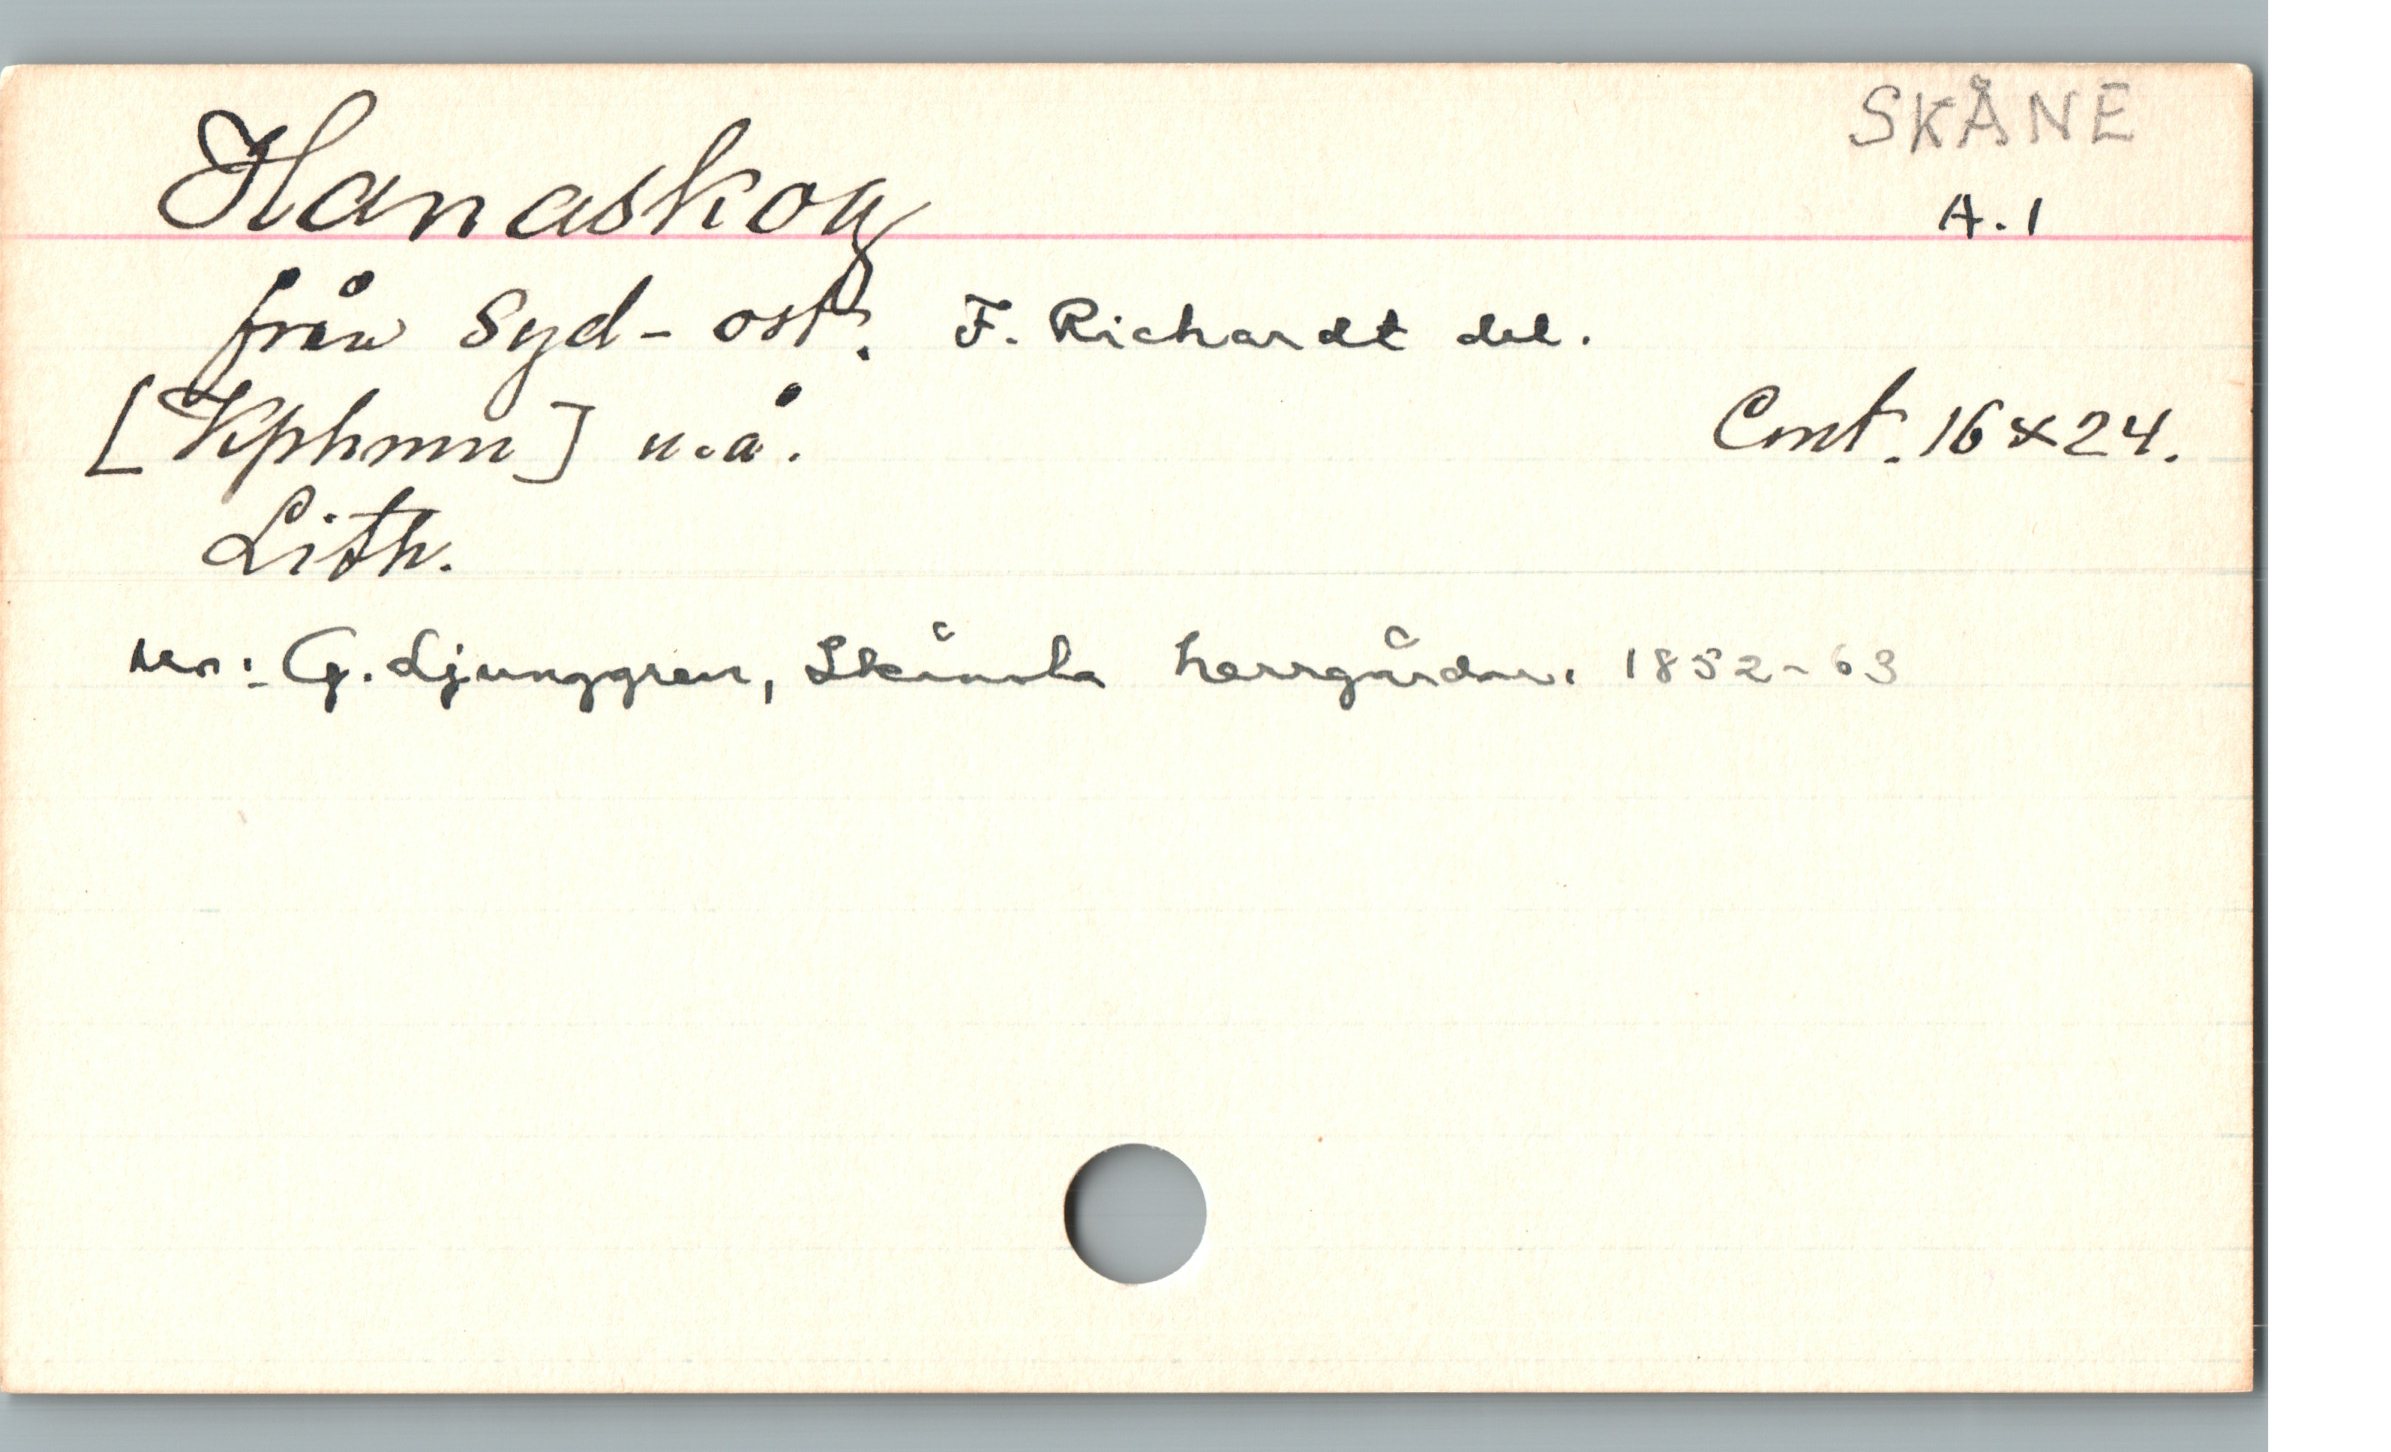 SKÅNE
Hanaskog
A.1
från Syd-ost. F. Richardt del.
[Kphmn] u.å. Cmt. 16x24.
Lith.
G. Ljunggren, Skånska herrgårdar. 1852-63